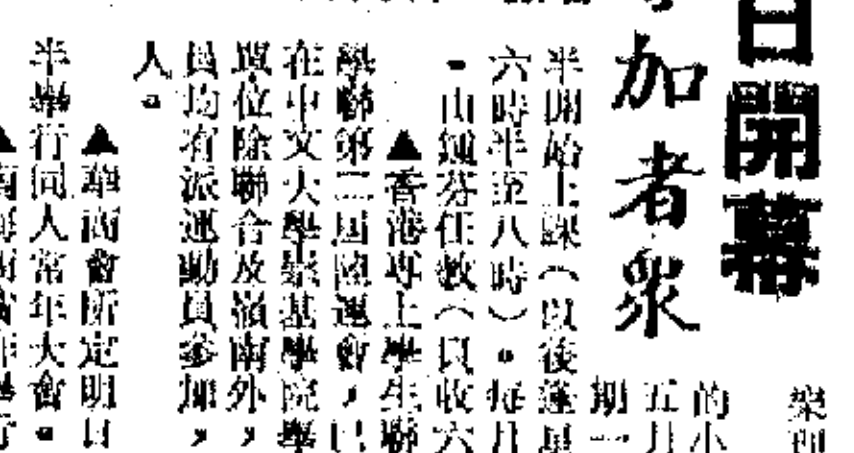 日開幕
加者衆
樂
的小
五月
期一
半開始上課（以後逢星
六時半至八時）。每月
。由鍾芬任教（只收六
▲香港專上學生聯
學聯第二屆陸運會，已
在中文大學崇基學院舉
單位除聯合及嶺南外，
員均有派運動員參加，
人。
▲華商會所定明日
半舉行同人常年大會。